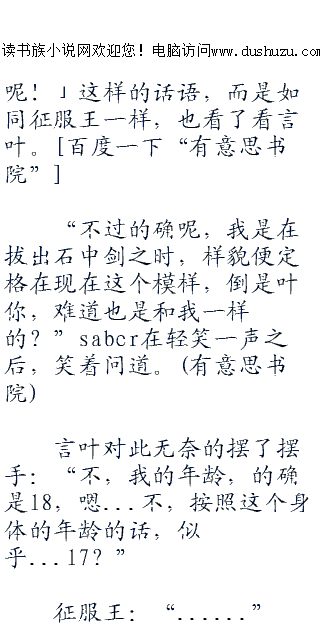 读书族小说网欢迎您！电脑访问www.dushuzu.com
呢！」这样的话语，而是如
同征服王一样，也看了看言
叶。[百度一下“有意思书
院”]
“不过的确呢，我是在
拔出石中剑之时，样貌便定
格在现在这个模样，倒是叶
你，难道也是和我一样
的？”sabcr在轻笑一声之
后，笑着问道。(有意思书
院)
言叶对此无奈的摆了摆
手：“不，我的年龄，的确
是18，嗯...不，按照这个身
体的年龄的话，似
乎...17？”
征服王：“......”